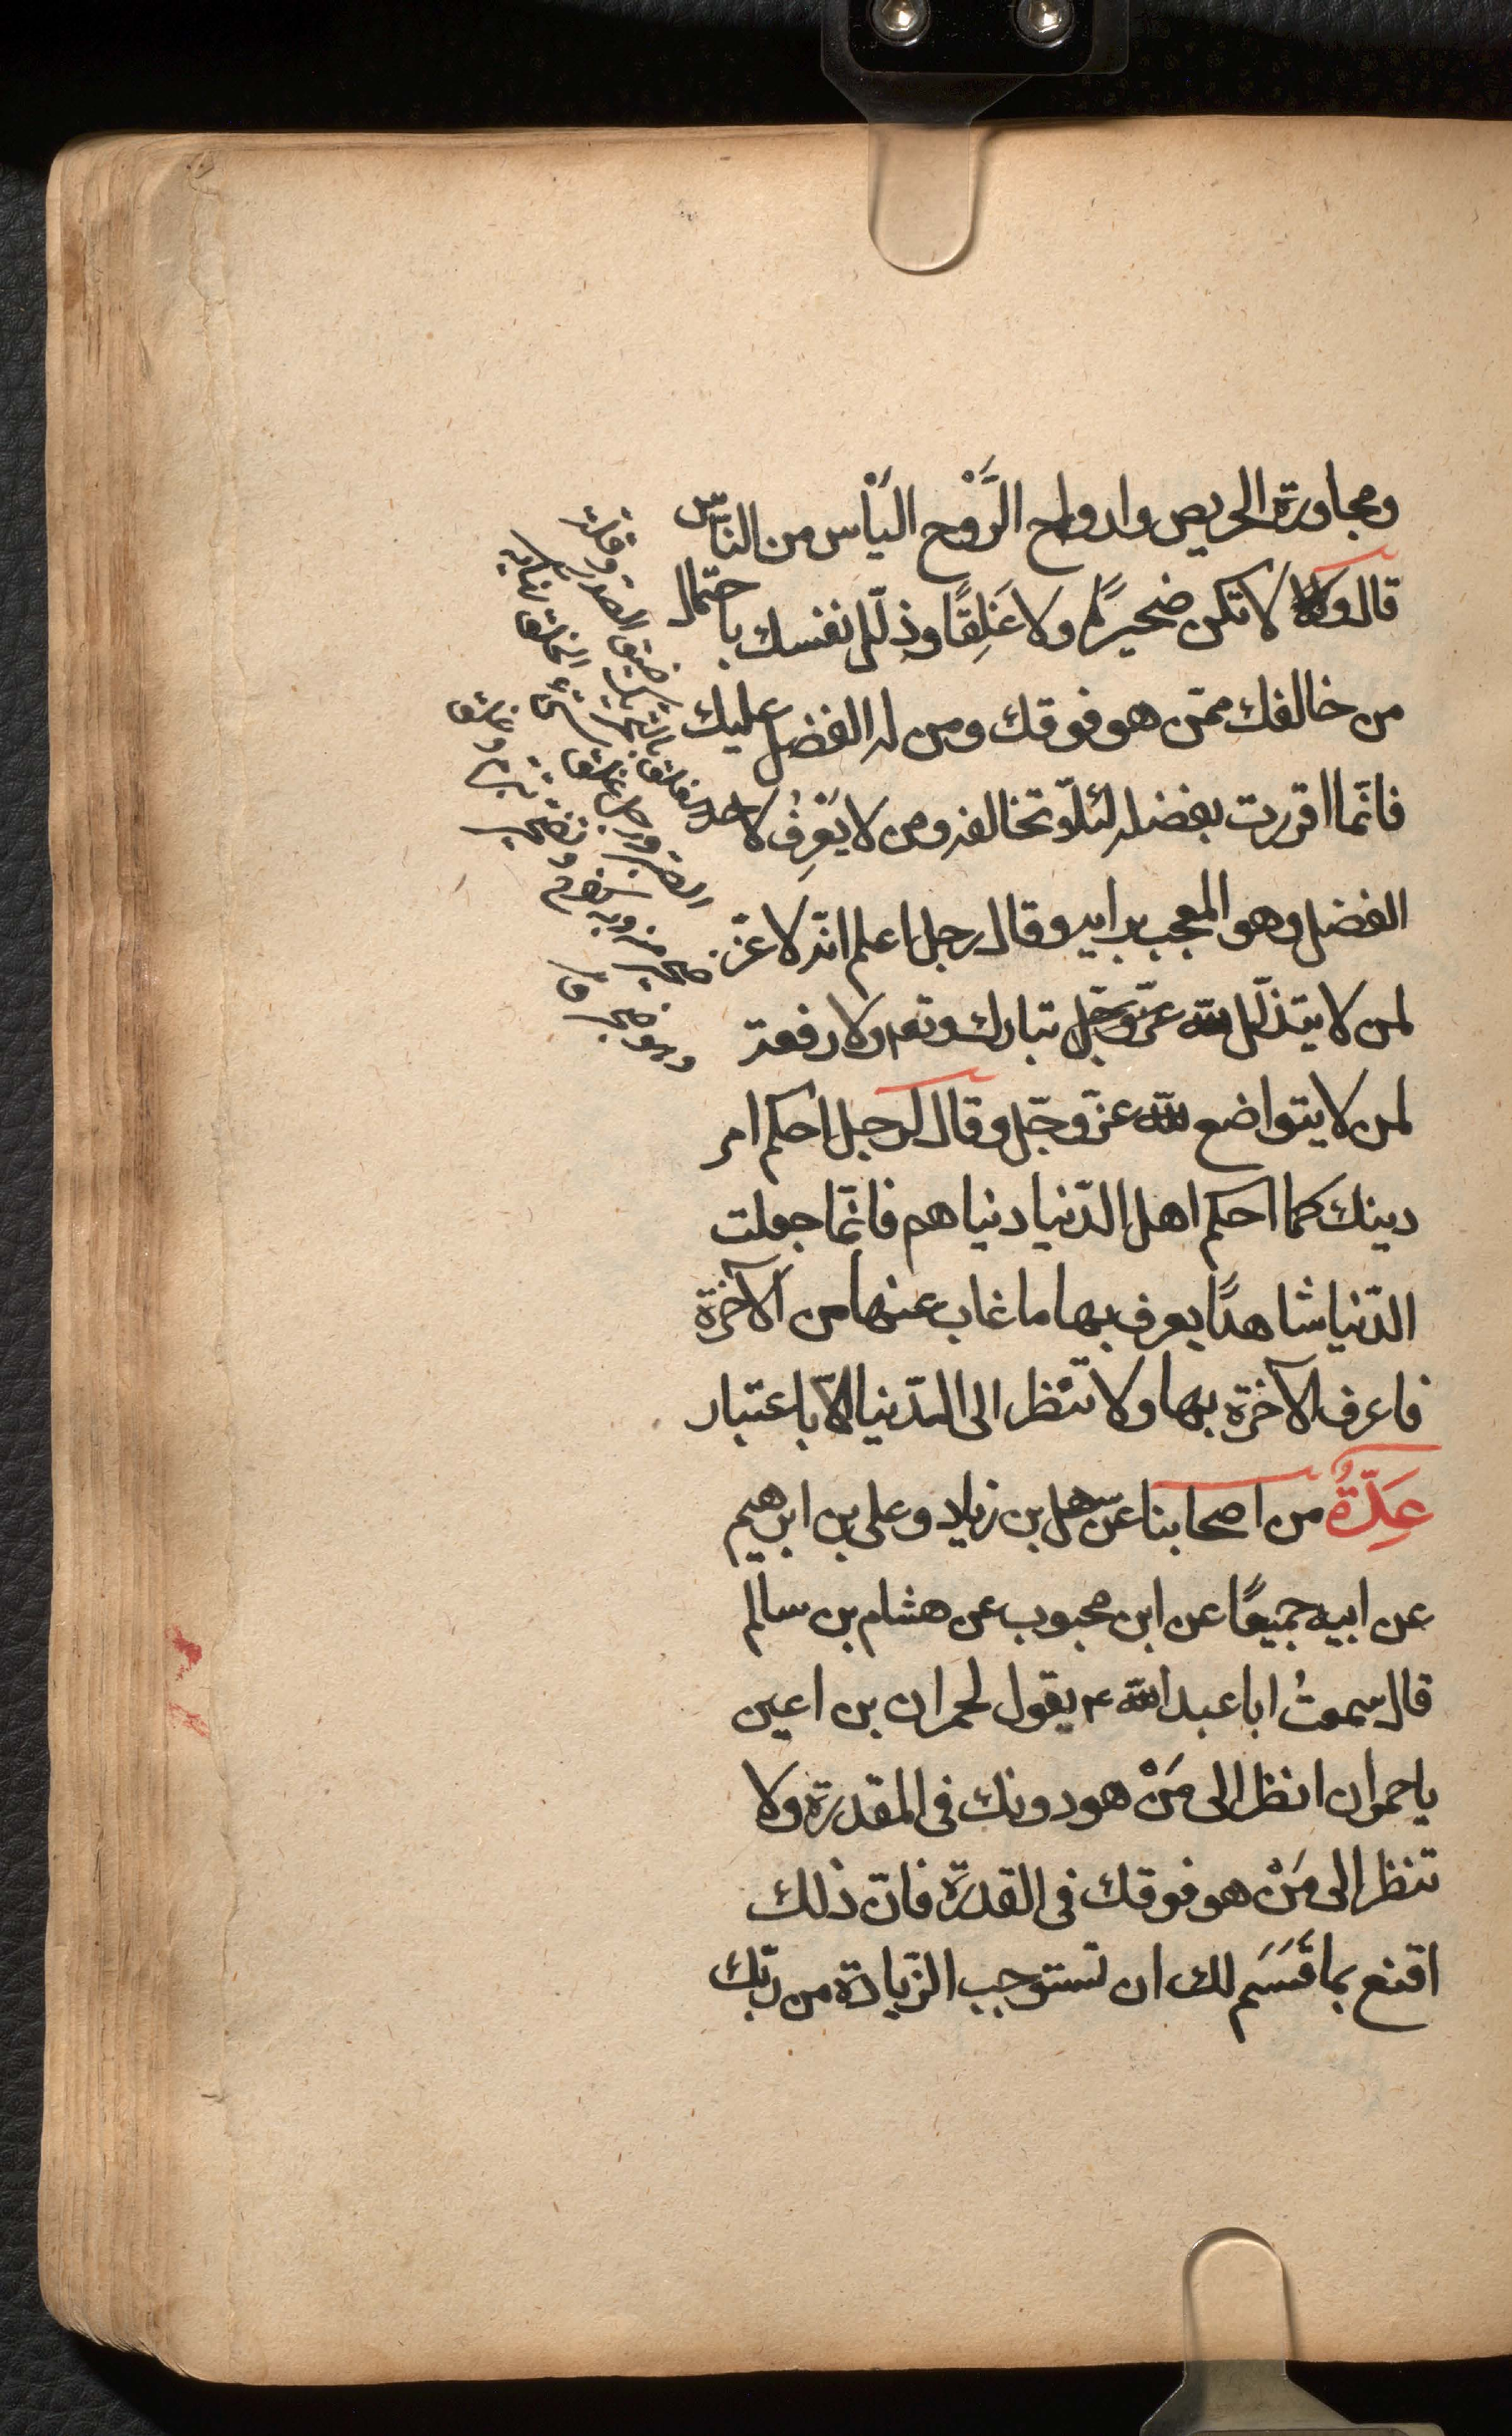 ومجاورة الحريص واروح الرَّوْح اليَأس من النّاس
قال ولا لا تكن ضجيرًا ولا غَلِقًا وذلّل نفسك باحتمال
من خالفك ممّن هو فوقك ومن له الفضل عليك
فانّما اقررت بفضله لئلّا تخالفه ومن لا يَعْرِفْ لاحد
الفضل وهو المعجب برايه وقال رجل اعلم انّه لا عزّ
لمن لا يتذلّل لله عزّ وجلّ تبارك وتع ولا رفعة
لمن لا يتواضع لله عزّ وجلّ وقال لرجل احكم امر
دينك كما احكم اهل الدّنيا دنياهم فانّما جعلت
الدّنيا شاهدًا يعرف بها ما غاب عنها من الآخرة
فاعرف الآخرة بها ولا تنظر الى الدّنيا الّا باعتبار
عِدّةٌ من اصحابنا عن سهل بن زياد وعلى بن ابرهيم
عن ابيه جميعًا عن ابن محبوب عن هشام بن سالم
قال سمعتُ ابا عبد الله ع يقول لحمران بن اعين
يا حمران انظر الى مَنْ هو دونك فى المقدرة ولا
تنظر الى مَنْ هو فوقك فى القدرة فانّ ذلك
اقنع بما قَسَمَ لك ان تستوجب الزّيادة من ربّك
الغلق بالتحريك ضيق الصدر وقلة
الصبر ورجل غلق سىّء الخلق نهايه
ضجر منه وبه وتضجر تبرم وغلق
وهو ضجر ق